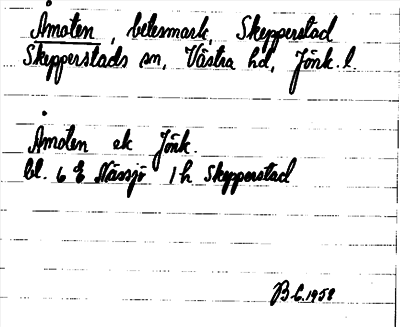 Åmoten, betesmark, Skepperstad
Skepperstads sn, Västra hd, Jönk. l.
Åmoten ek Jönk.
bl. 6 E Nässjö 1 h Skepperstad
B L. 1958